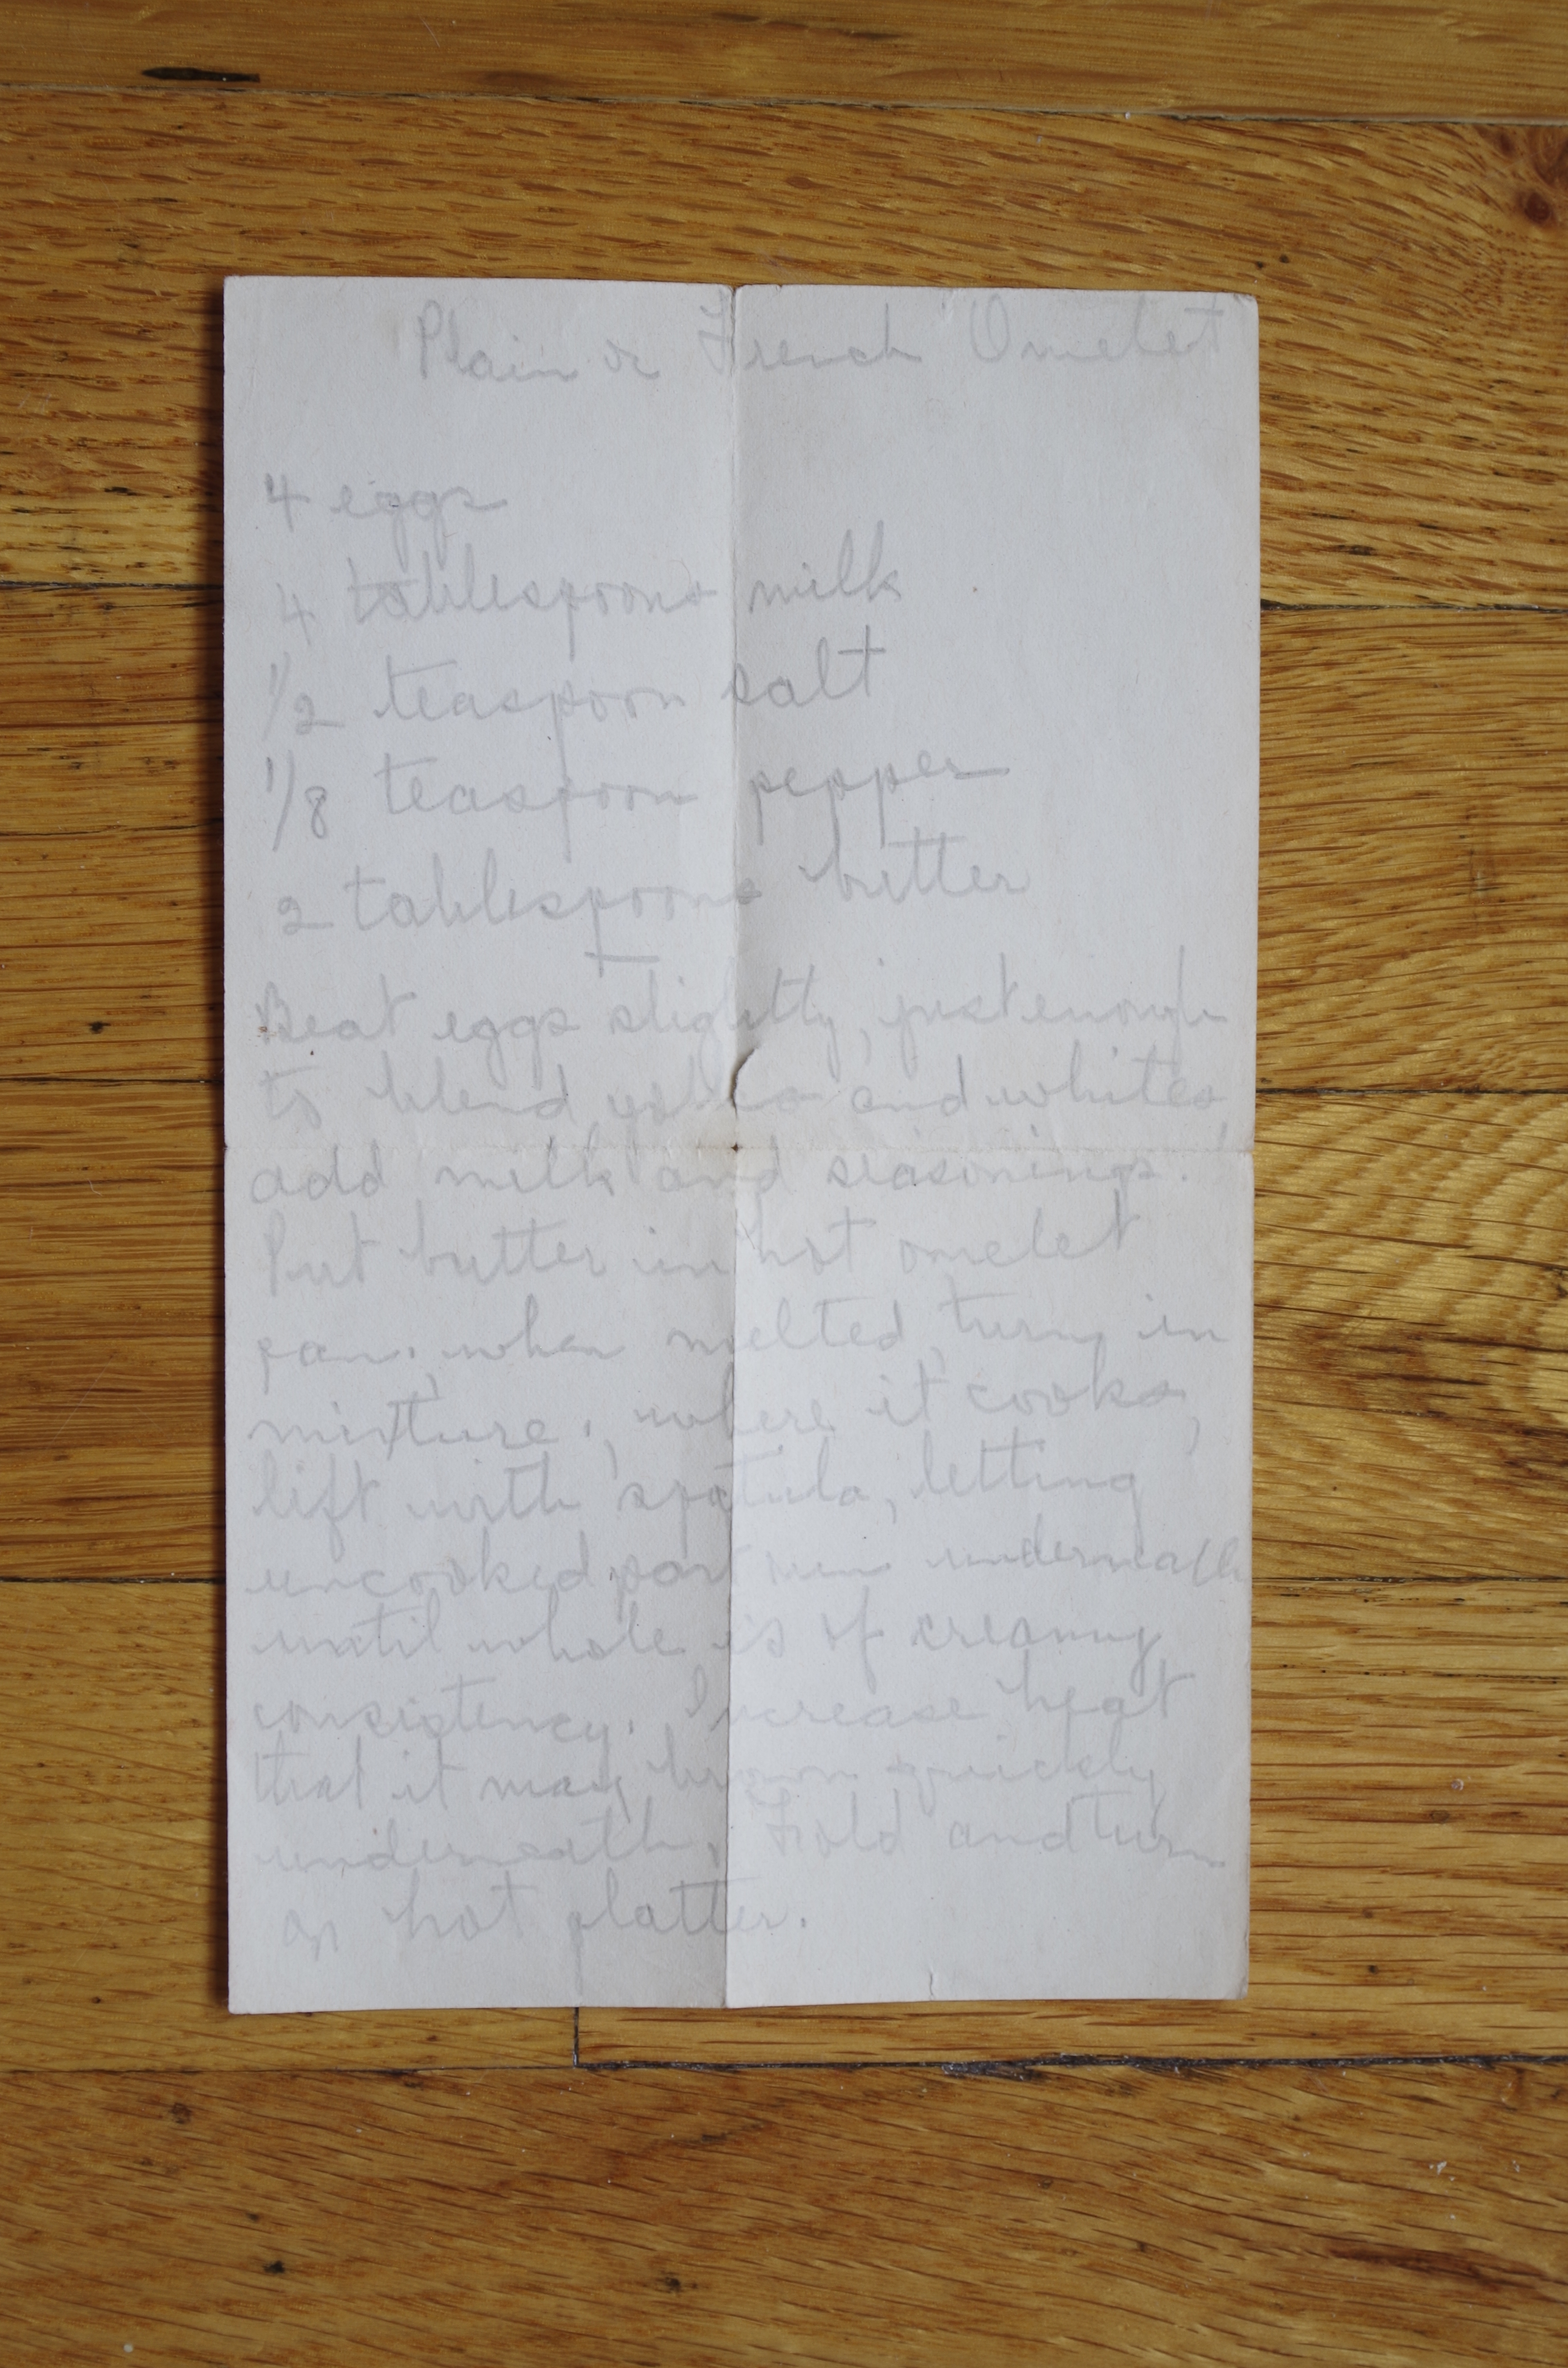 Plain or French Omelet
4 eggs
4 tablespoons milk
1/2 teaspoon salt
1/8 teaspoon pepper
2 tablespoons butter
Beat eggs slightly, just enough
to blend yolks and whites,
add milk and seasonings.
Put butter in hot omelet
pan; when melted, turn in
mixture; where it cooks,
lift with spatula, letting
uncooked part run underneath
until whole is of creamy
consistency. Increase heat
that it may brown quickly
underneath. Fold and turn
on hot platter.